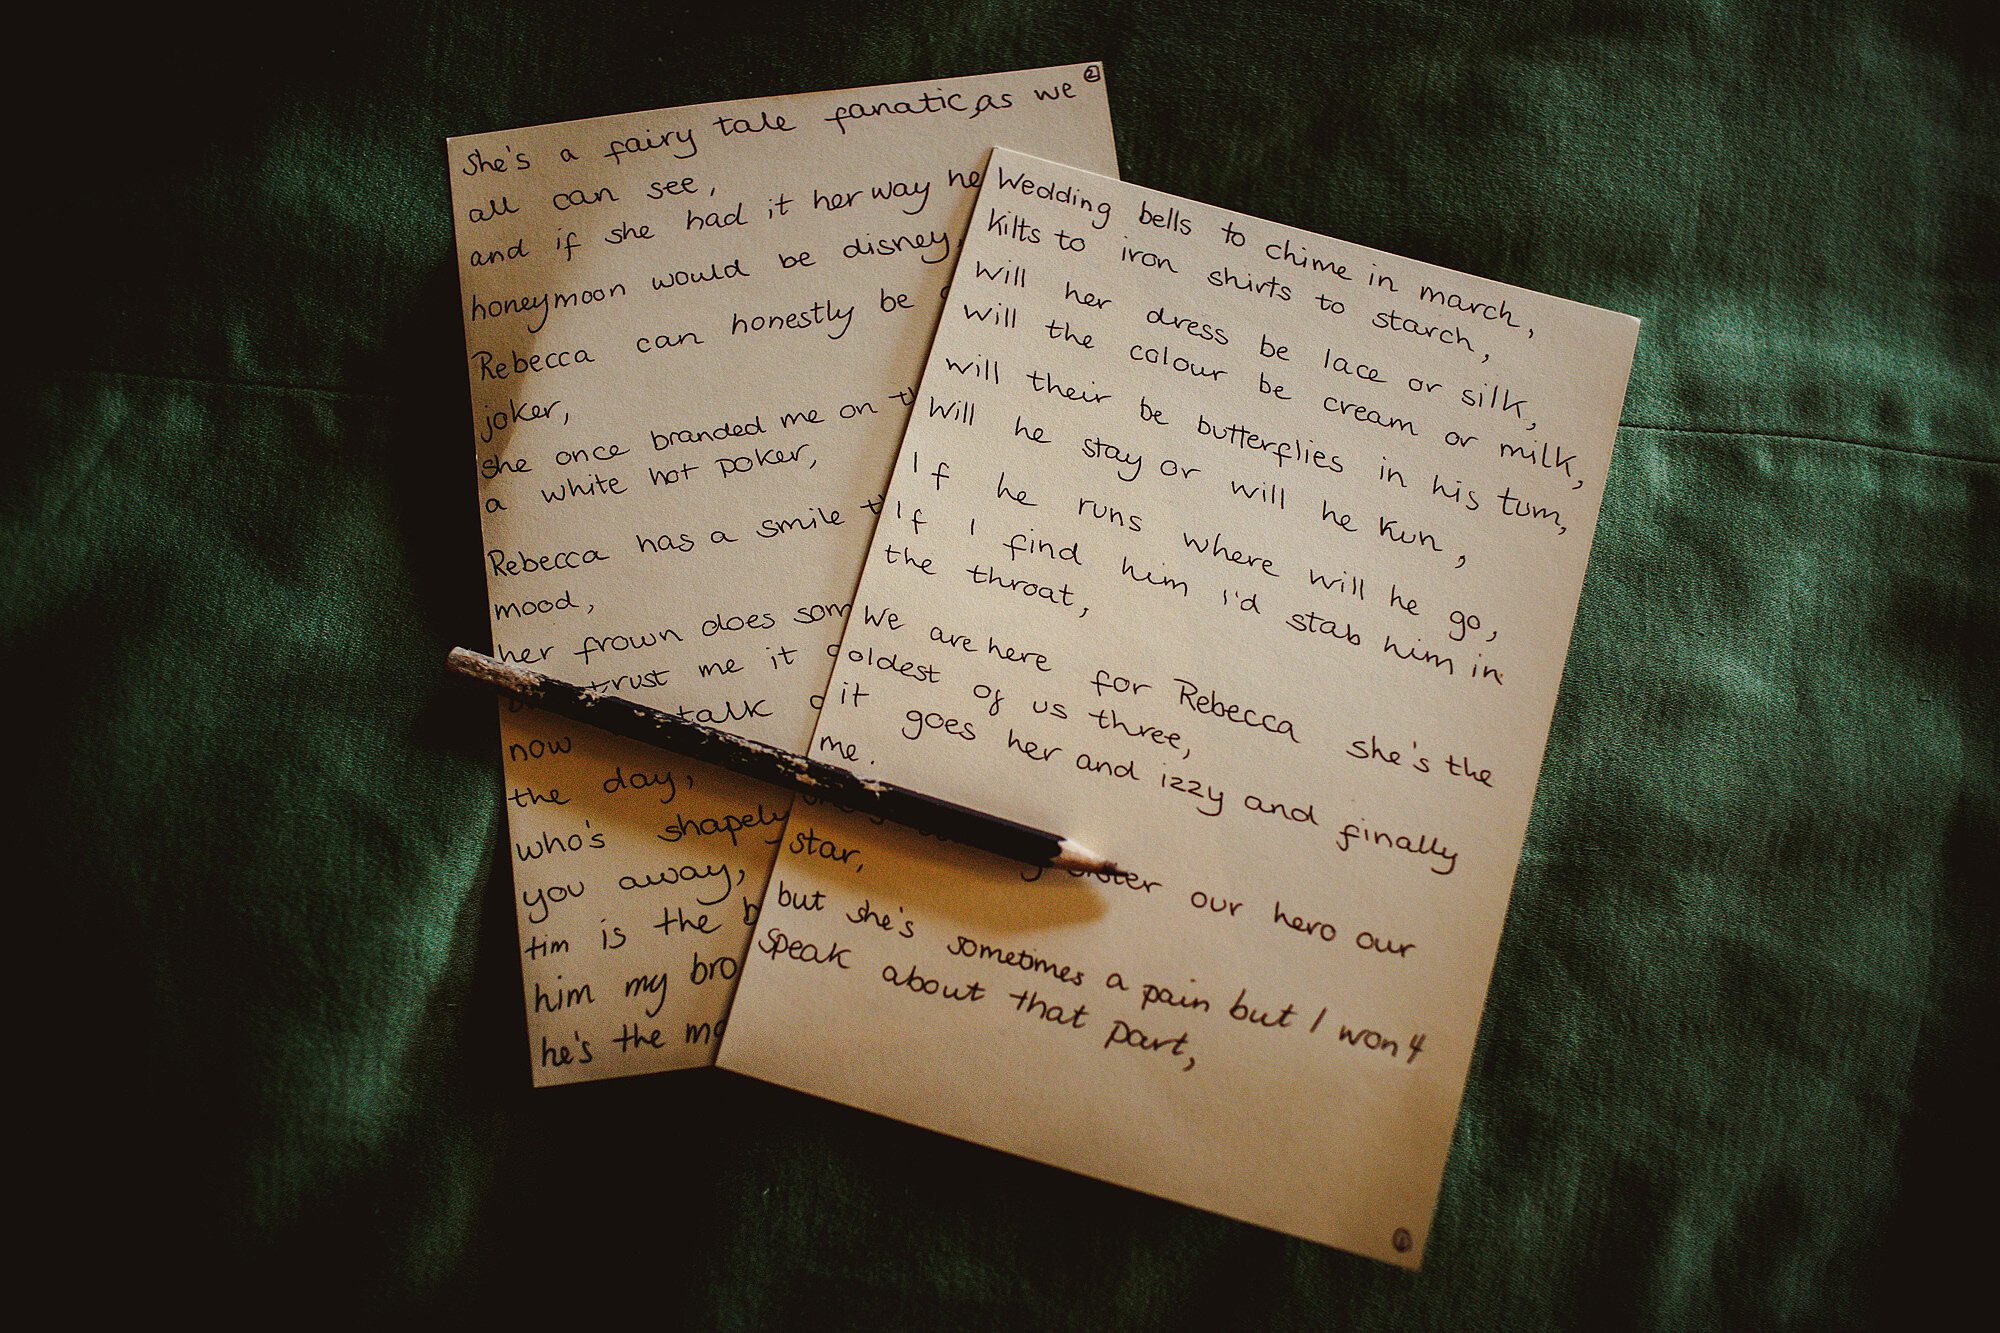 Wedding bells to chime in march,
Kilts to iron shirts to starch,
will her dress be lace or silk,
will the colour be cream or milk,
will their be butterflies in his tum,
Will he stay or will he run,
If he runs where will he go,
If I find him I'd stab him in
the throat,
We are here for Rebecca she's the
oldest of us three,
it goes her and izzy and finally
me.
sister our hero our
star,
but she's sometimes a pain but I won't
speak about that part,
1
2
She's a fairy tale fanatic, as we
all can see,
and if she had it her way
honeymoon would be disney,
Rebecca can honestly be
joker,
she once branded me on
a white hot poker,
Rebecca has a smile
mood,
her frown does
trust me it
talk
now
the day,
who's shapely
you away,
tim is the
him my bro
he's the